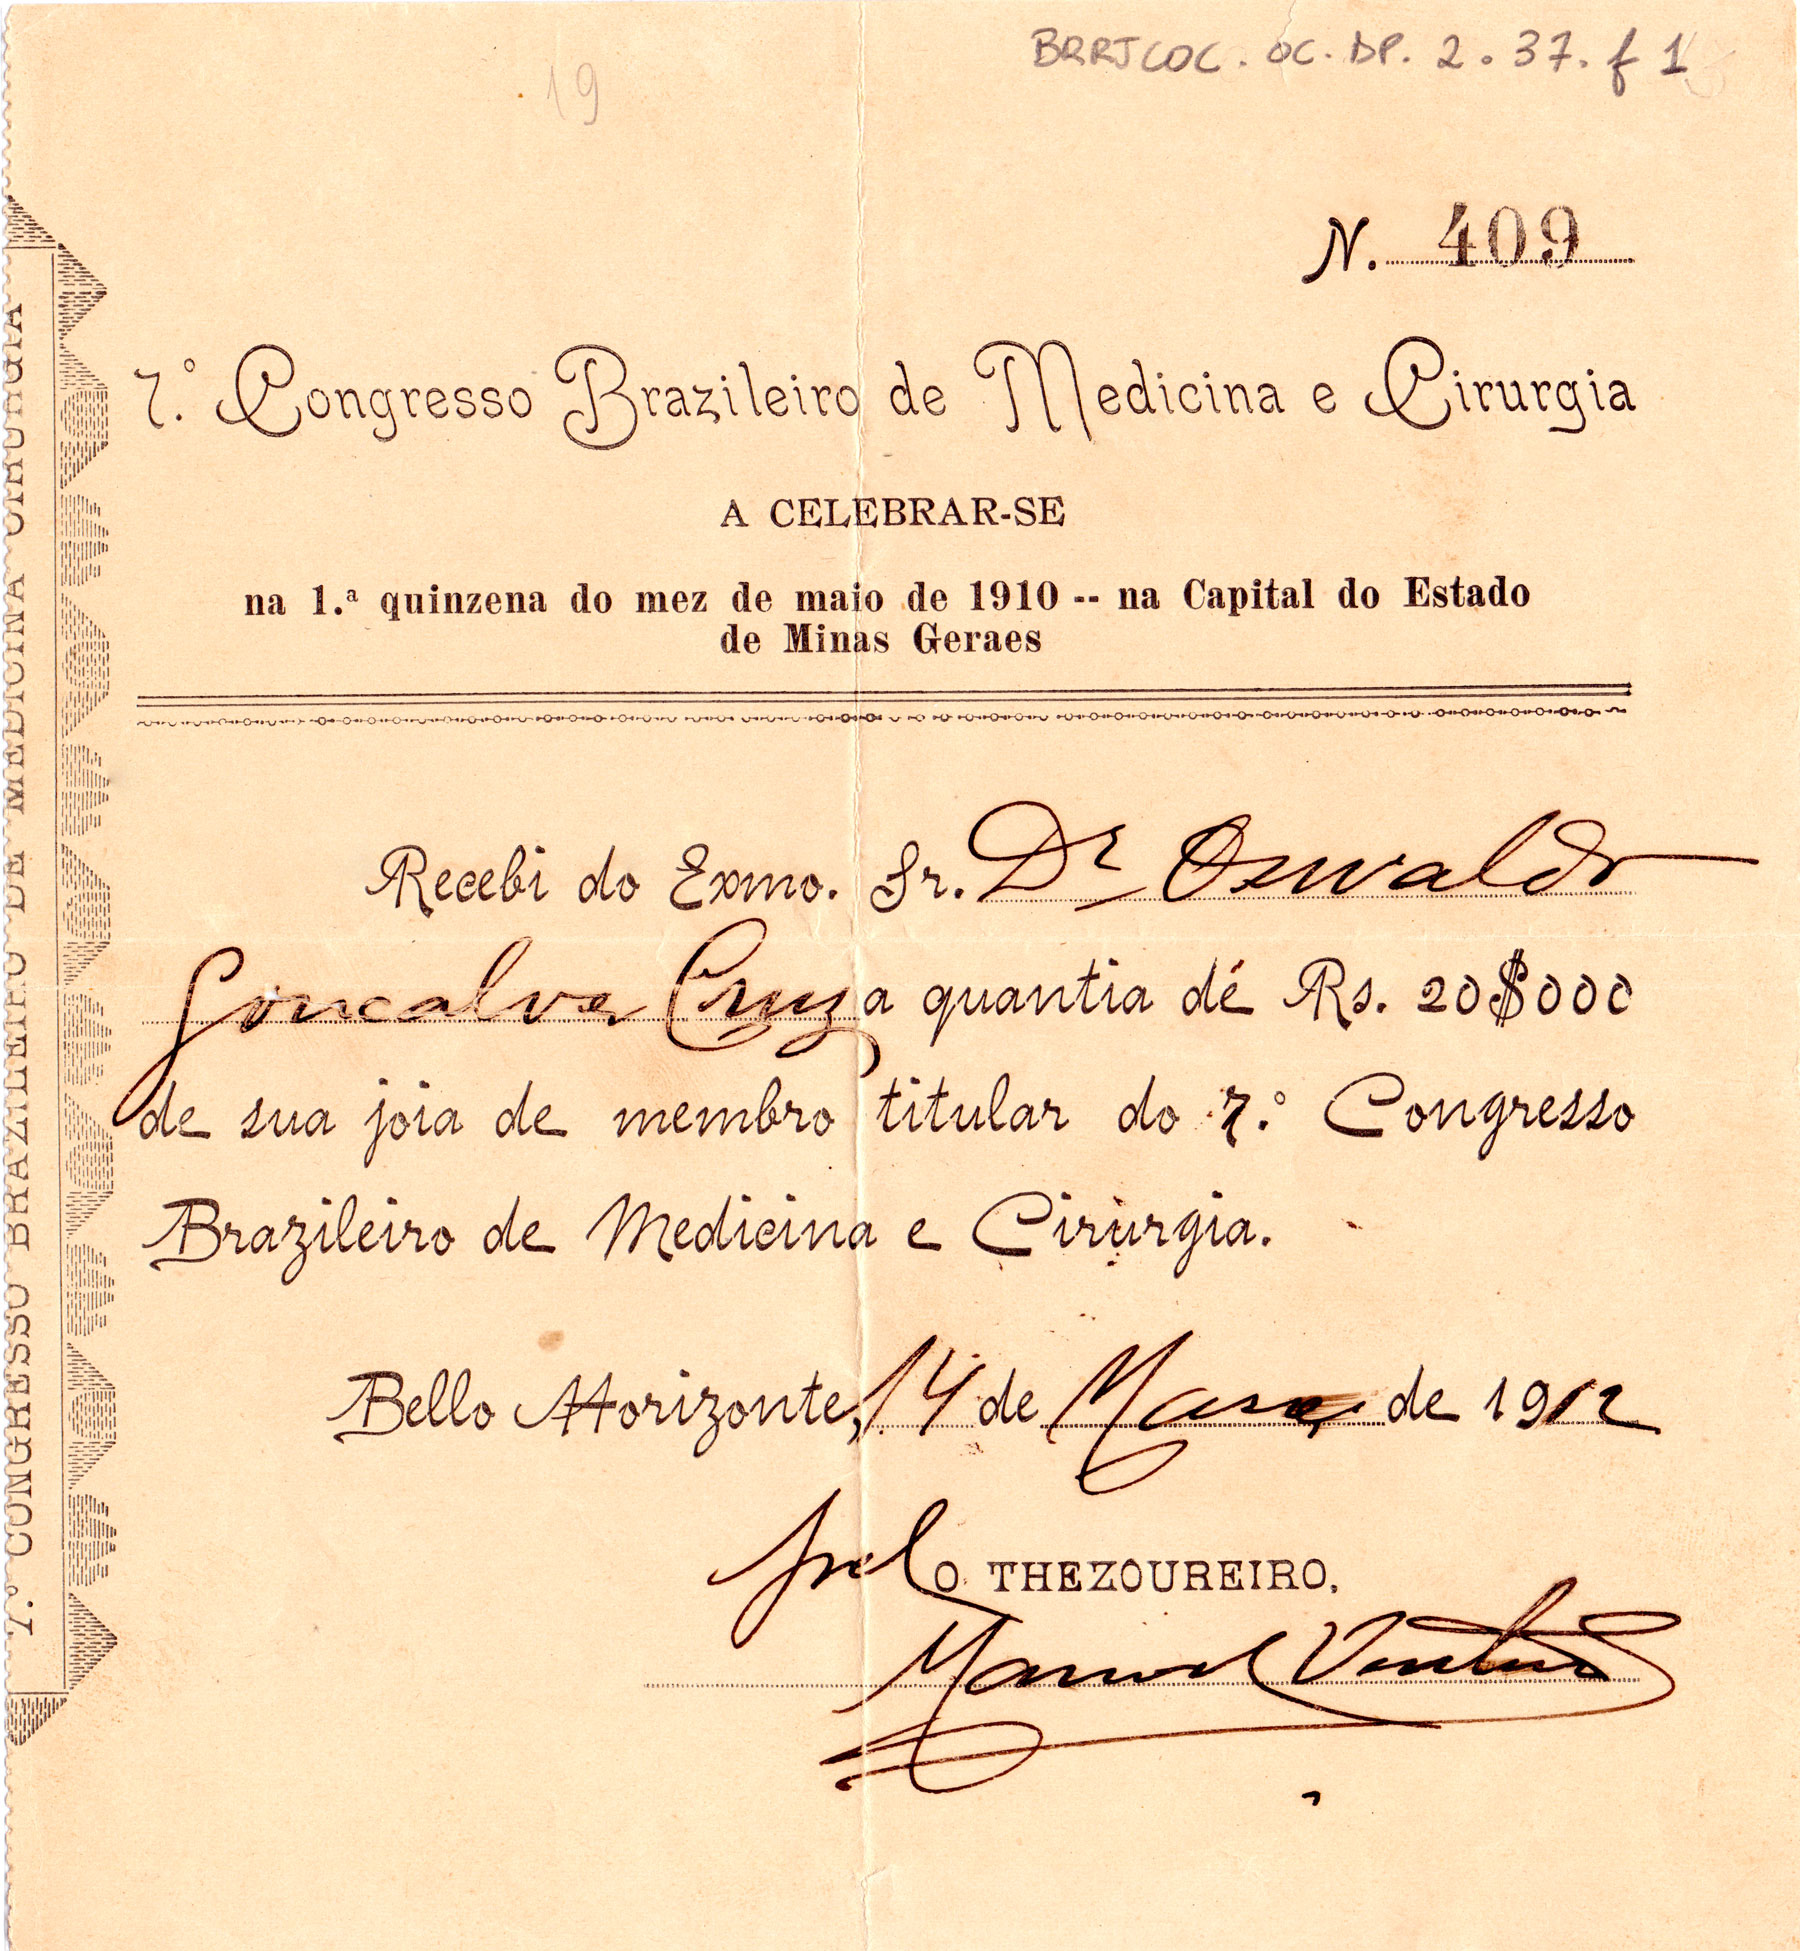 BRRJCOC. OC. DP. 2. 37. f 1
19
N. 409
7.º Congresso Brazileiro de Medicina e Cirurgia
A CELEBRAR-SE
na 1.ª quinzena do mez de maio de 1910 -- na Capital do Estado
de Minas Geraes
Recebi do Exmo. Sr. Dr Oswaldo
Goncalves Cruz a quantia dé Rs. 20$000
de sua joia de membro titular do 7.º Congresso
Brazileiro de Medicina e Cirurgia.
Bello Horizonte, 14 de Março de 1912
pelo O THEZOUREIRO,
Manoel
7.º CONGRESSO BRAZILEIRO DE MEDICINA CIRURGIA